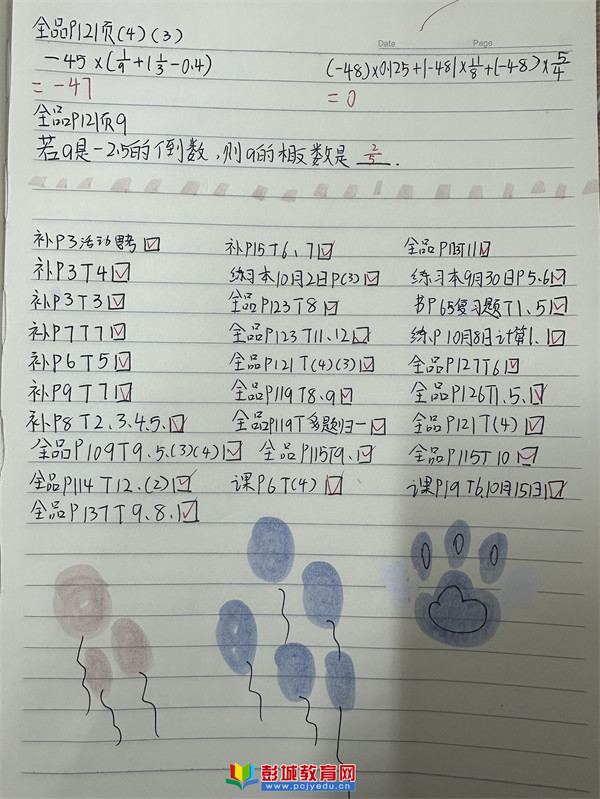 全品P121页(4)(3)
Date Page
-45×(1/9+1 1/3-0.4) (-48)×0.125+|-48|×11/8+(-48)×5/4
=-47 =0
全品P121页9
若a是-2.5的倒数,则a的相反数是 2/5 .
补P3活动思考☑ 补P15T6、7☑ 全品P113T11☑
补P3T4☑ 练习本10月2日P(3)☑ 练习本9月30日P5.6☑
补P3T3☑ 全品P123T8☑ 书P65复习题T1、5☑
补P7T7☑ 全品P123T11、12☑ 练P10月8日计算1、1☑
补P6T5☑ 全品P121T(4)(3)☑ 全品P127T6☑
补P9T7☑ 全品P119T8、9☑ 全品P126T1、5、☑
补P8T2、3、4、5、☑ 全品P119T多题归一☑ 全品P121T(4)☑
全品P109T9、5、(3)(4)☑ 全品P115T9、☑ 全品P115T10☑
全品P114T12、(2)☑ 课P6T(4)☑ 课P19T6,10月15日☑
全品P137T9、8、☑
彭城教育网
www.pcjyedu.cn